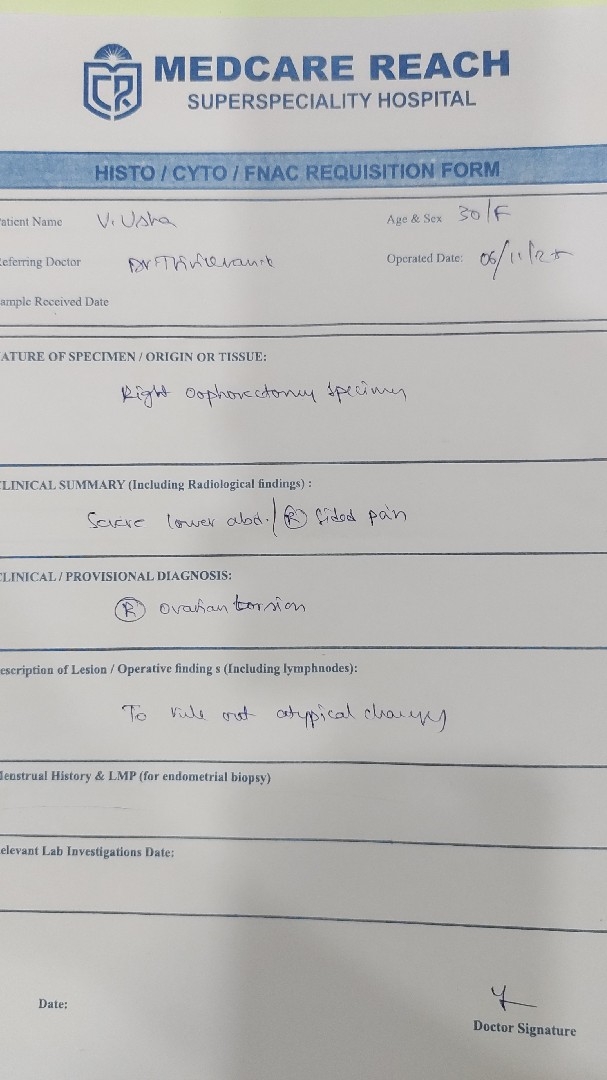 MEDCARE REACH
SUPERSPECIALITY HOSPITAL
HISTO / CYTO / FNAC REQUISITION FORM
atient Name V. Usha Age & Sex 30/F
eferring Doctor Dr Operated Date: 06/11/25
ample Received Date
ATURE OF SPECIMEN / ORIGIN OR TISSUE:
Right oophorectomy specimen
LINICAL SUMMARY (Including Radiological findings) :
Severe lower abd. / (R) sided pain
LINICAL / PROVISIONAL DIAGNOSIS:
(R) ovarian torsion
escription of Lesion / Operative finding s (Including lymphnodes):
To rule out atypical changes
Menstrual History & LMP (for endometrial biopsy)
elevant Lab Investigations Date:
Date:
Doctor Signature